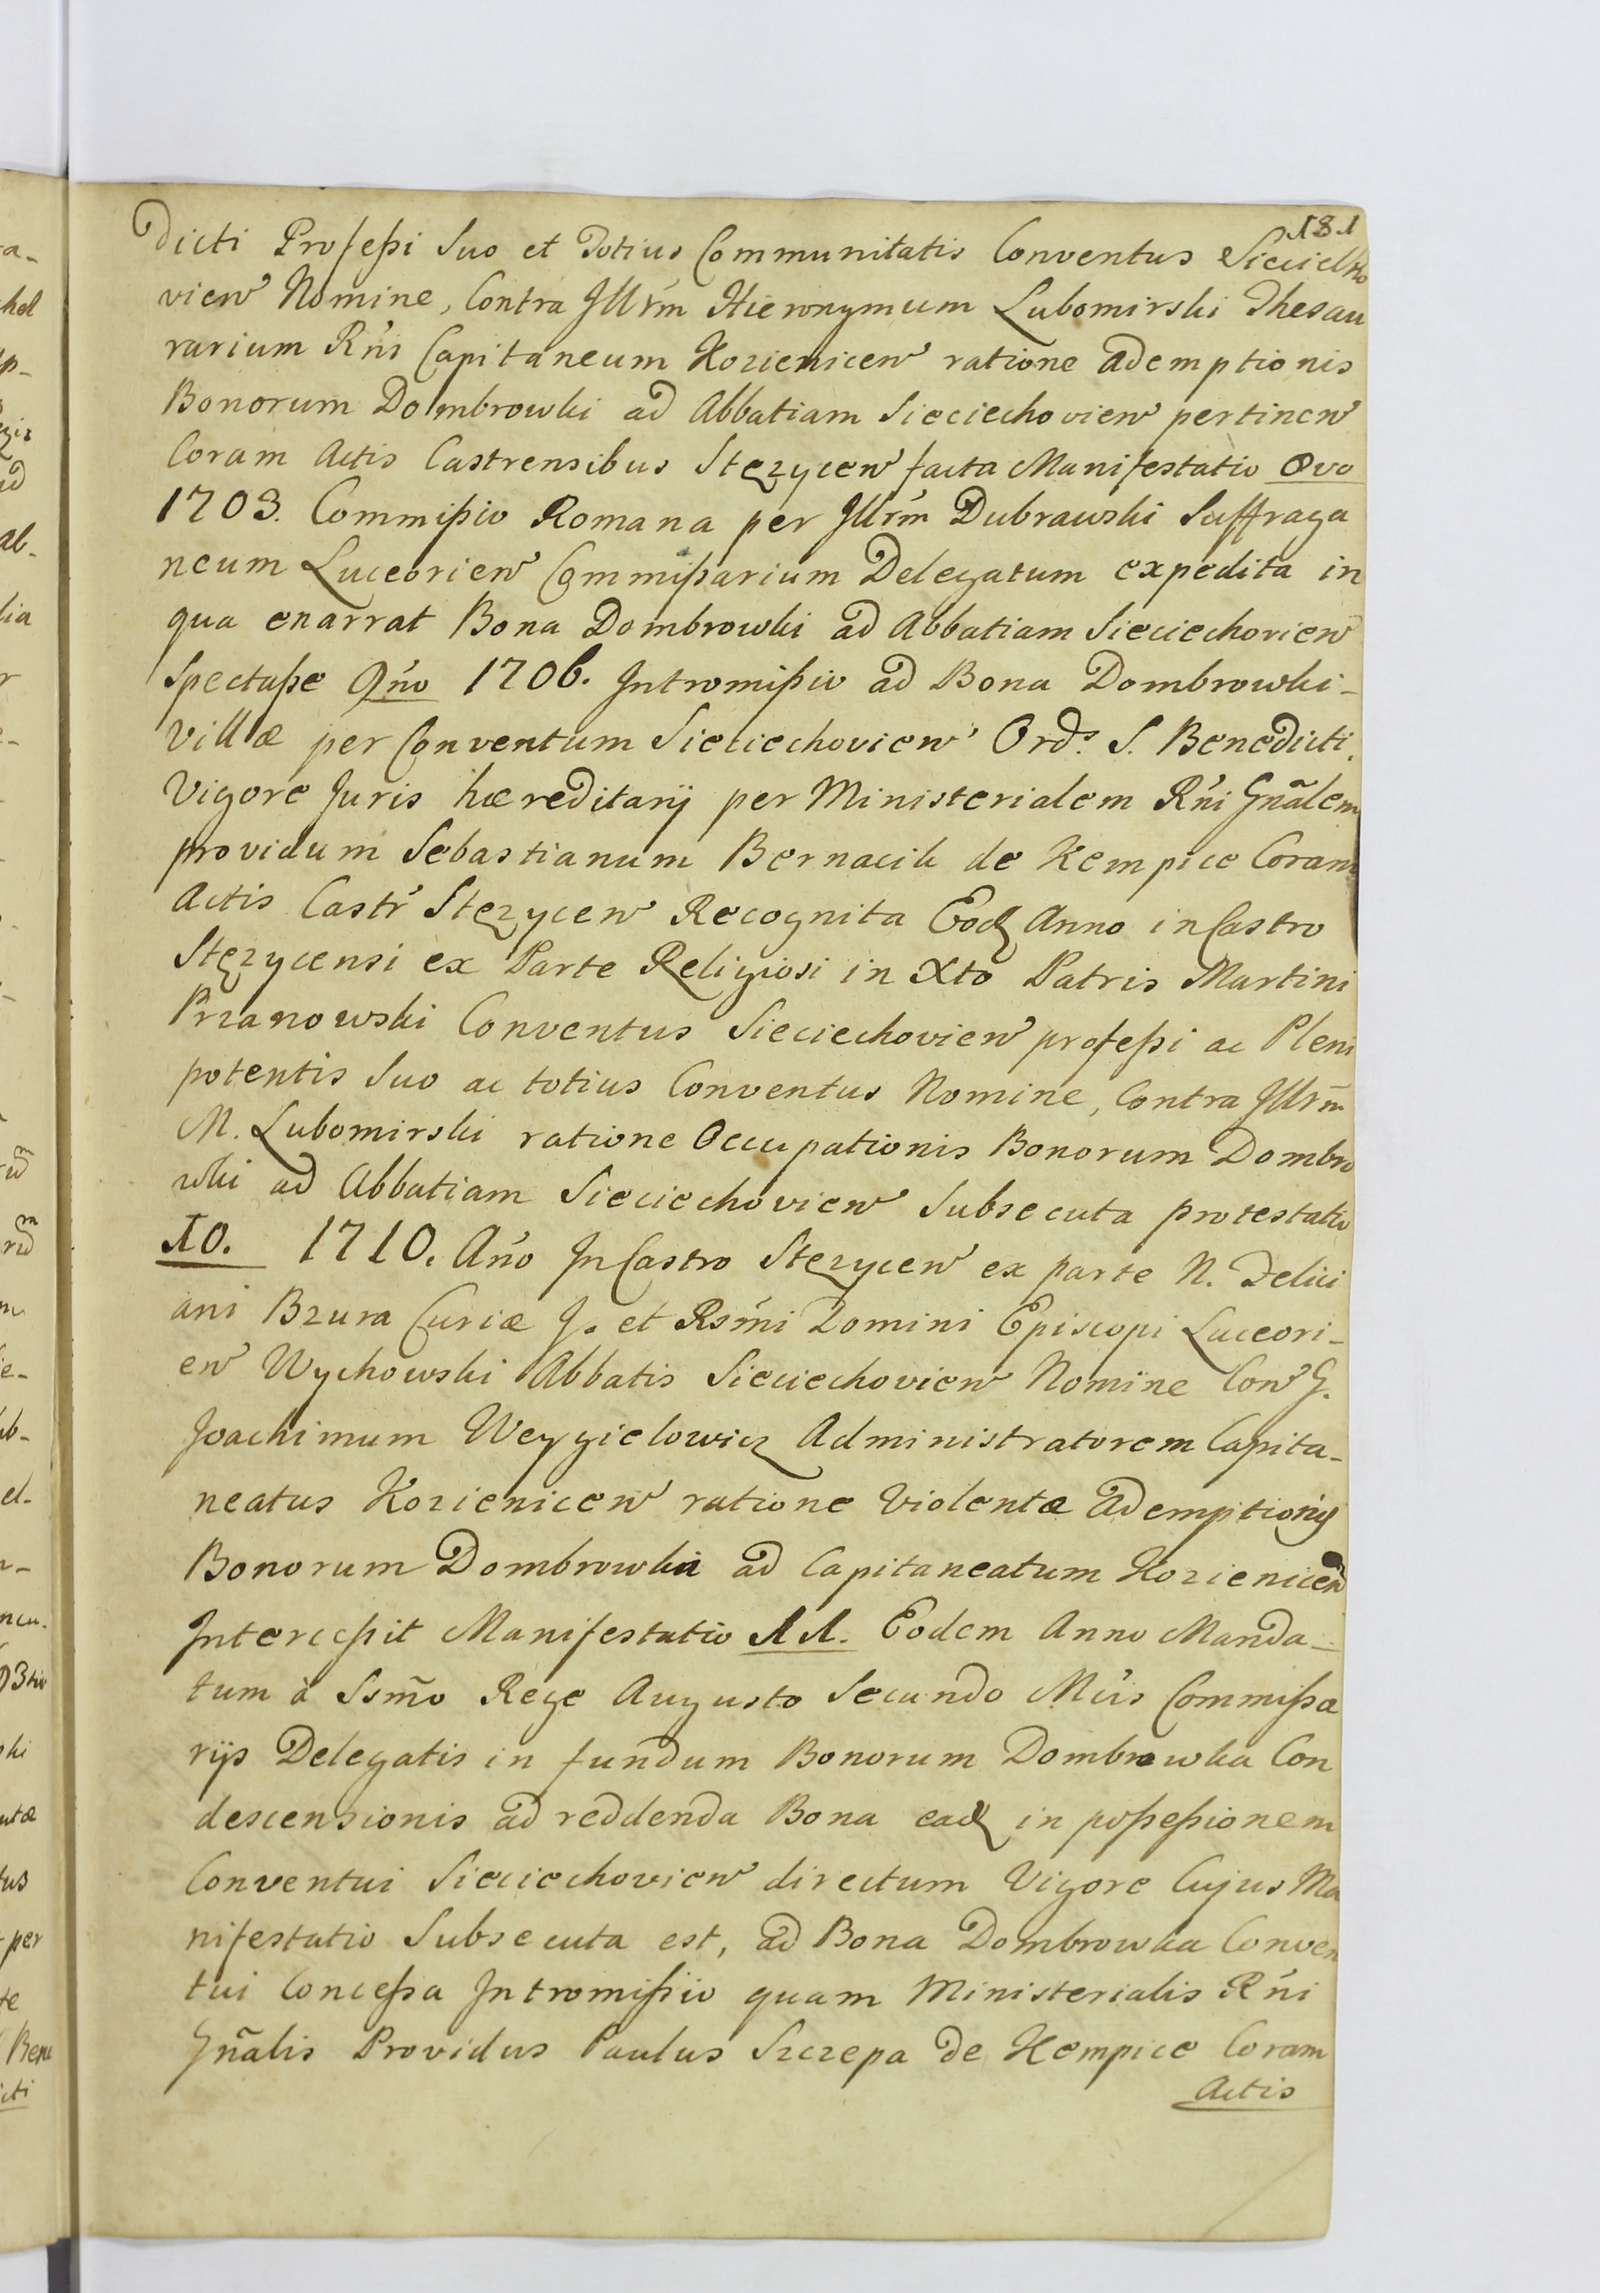 181
Dicti Professi Suo et Totius Communitatis Conventus Sieciecho
vien Nomine, Contra Jllr̃m Hieronymum Lubomirski Thesau
rarium Rn̍i Capitaneum Kozienicen ratione ademptionis
Bonorum Dombrowki ad Abbatiam Sieciechovien pertinen
Coram Actis Castrensibus Stęzycen facta Manifestatio 8vo
1703. Commißio Romana per Jllr̃m Dubrawski Suffraga
neum Luceorien Commißarium Delegatum expedita in
qua enarrat Bona Dombrowki ad Abbatiam Sieciechovien
Spectaße 9no 1706. Intromißio ad Bona Dombrowki-
Villæ per Conventum Sieciechovien Ords S. Benedicti.
Vigore Juris hæreditarij per Ministerialem Rn̍i Gñalem
providum Sebastianum Bernacik de Kempice Coram
Actis Castr̍ Stęzycen Recognita Eodɋ Anno in Castro
Stęzycensi ex Parte Religiosi in Xto Patris Martini
Przanowski Conventus Sieciechovien profeßi ac Pleni
potentis Suo ac totius Conventus Nomine, Contra Jllr̃m
M. Lubomirski ratione Occupationis Bonorum Dombro
wki ad Abbatiam Sieciechovien Subsecuta protestatio
10. 1710. Ano In Castro Stęzycen ex parte N. Felici
ani Bzura Curiæ J. et Rsm̍i Domini Episcopi Luceori-
en Wychowski Abbatis Sieciechovien Nomine Con G.
Joachimum Weygielowicz Administratorem Capita-
neatus Kozienicen ratione Violentæ Ademptionis
Bonorum Dombrowka ad Capitaneatum Kozienicen
Interceßit Manifestatio 11. Eodem Anno Manda-
tum à Ssm̃o Rege Augusto Secundo Mcis Commißa
rijs Delegatis in fundum Bonorum Dombrowka Con
descensionis ad reddenda Bona eadɋ in poßeßionem
Conventui Sieciechovien directum Vigore Cujus Ma
nifestatio Subsecuta est, ad Bona Dombrowka Conven
tui Conceßa Intromißio quam Ministerialis Rn̍i
Gñalis Providus Paulus Szczepa de Kempice Coram
Actis